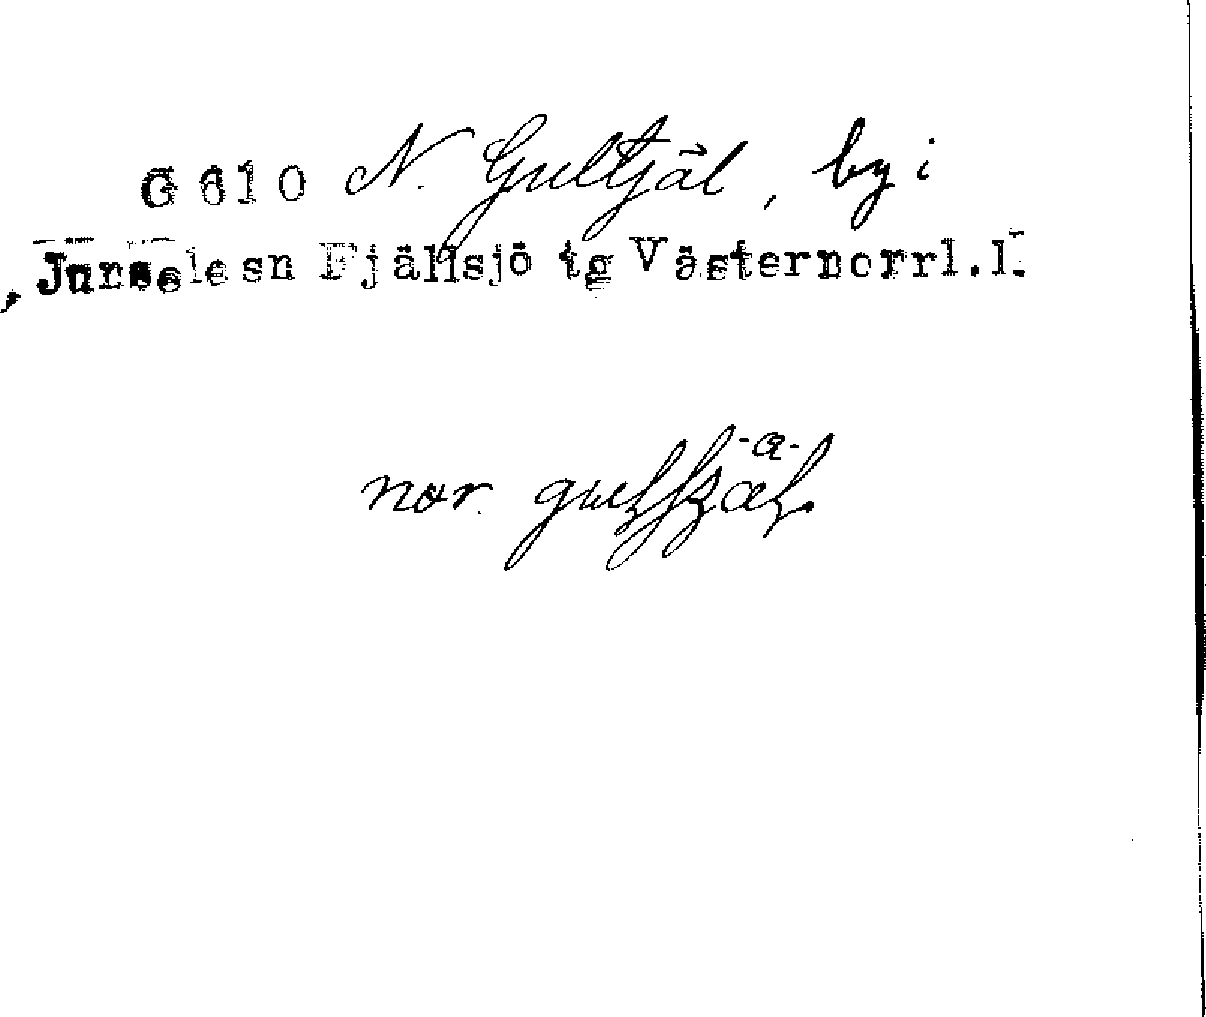 G 610 N. Gultjäl, by i
Junsele sn Fjällsjö tg Västernorrl.l.
-a-
nor.